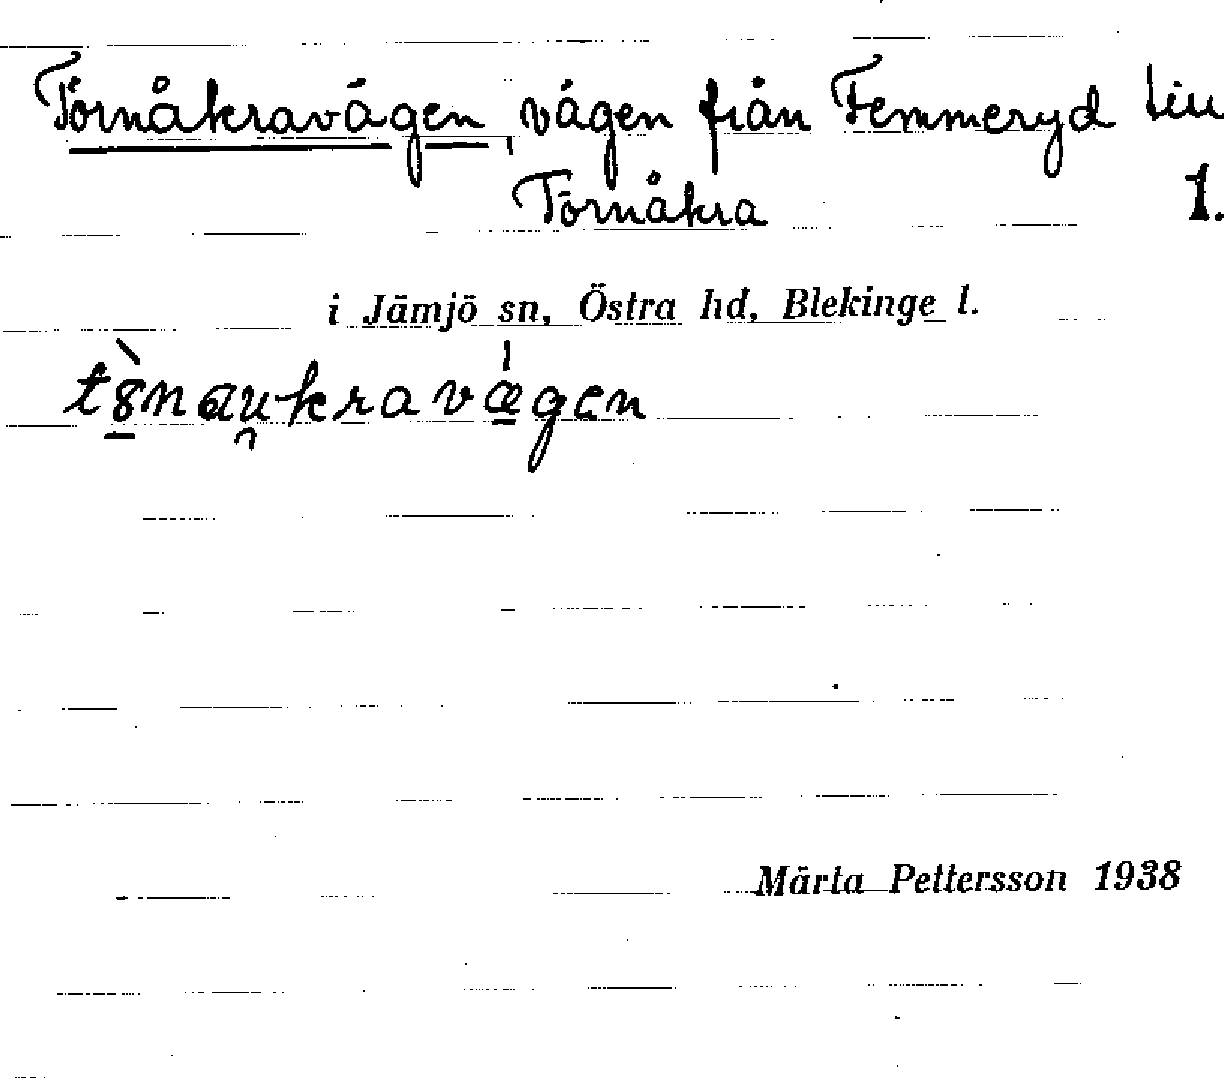 Törnåkravägen, vägen från Femmeryd till
Törnåkra 1.
i Jämjö sn, Östra hd, Blekinge l.
Märta Pettersson 1938